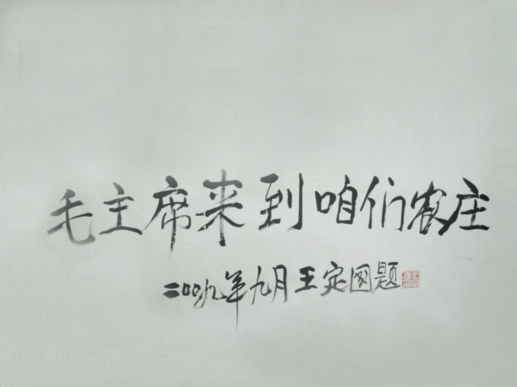 毛主席来到咱们农庄
二〇〇九年九月王定国题